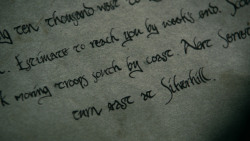 ng ten thousand west to
. Estimate to reach you by week's end.
k moving troops south by coast. Alert
turn east at Silverhill.